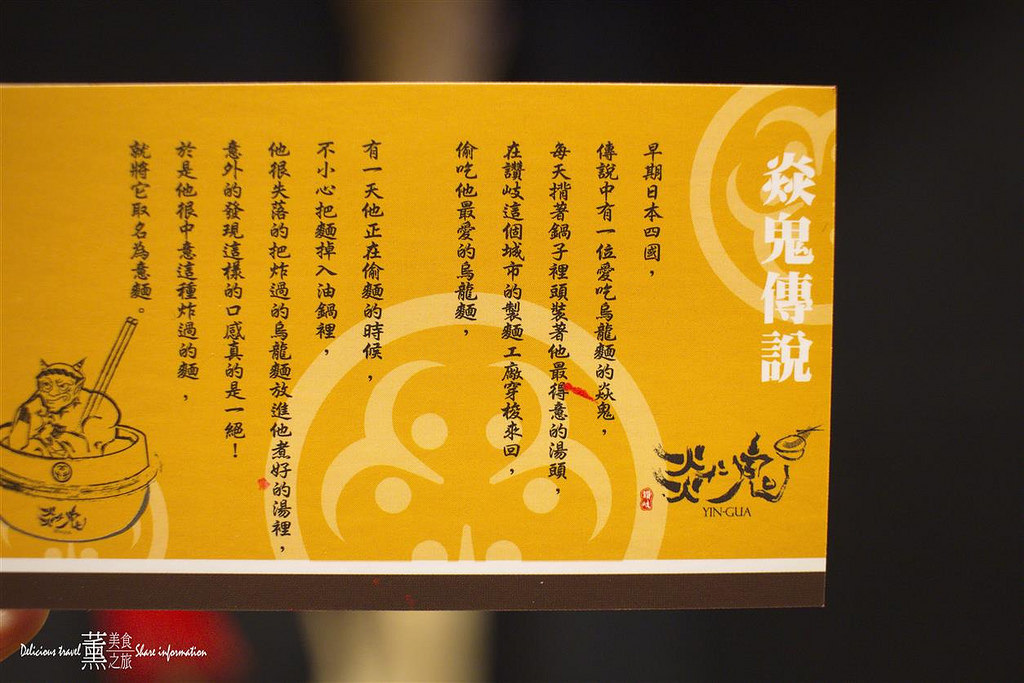 焱鬼傳說
早期日本四國，
傳說中有一位愛吃烏龍麵的焱鬼，
每天揹著鍋子裡頭裝著他最得意的湯頭，
在讚岐這個城市的製麵工廠穿梭來回，
偷吃他最愛的烏龍麵，
有一天他正在偷麵的時候，
不小心把麵掉入油鍋裡，
他很失落的把炸過的烏龍麵放進他煮好的湯裡，
意外的發現這樣的口感真的是一絕！
於是他很中意這種炸過的麵，
就將它取名為意麵。
YIN-GUA
Delicious travel
薰
美食
之旅
Share information